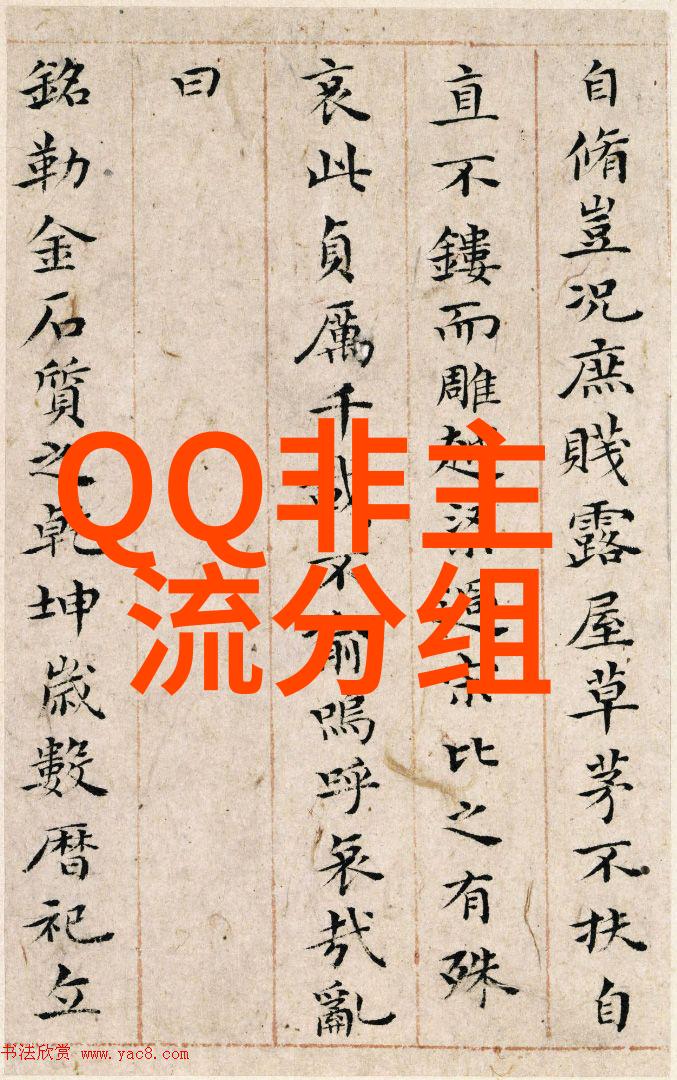 自脩豈況庶賤露屋草茅不扶自
直不鏤而雕越梁過宋比之有殊
哀此貞厲千載不渝嗚呼哀哉亂
曰
銘勒金石質之乾坤歲數暦祀立
QQ非主
流分组
书法欣赏 www.yac8.com